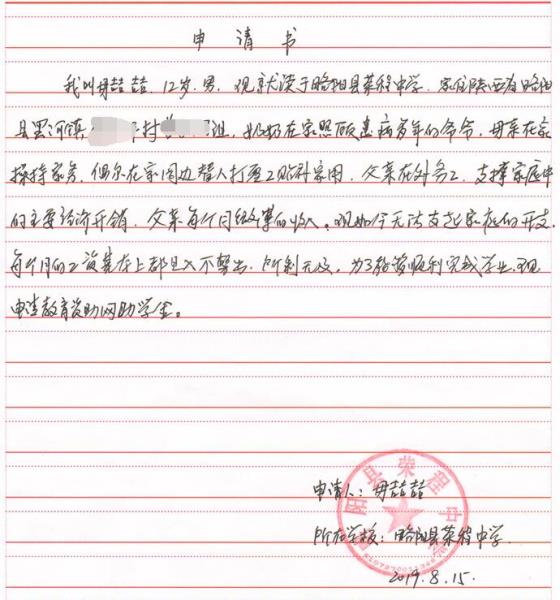 申请书
我叫毋喆喆，12岁，男，现就读于略阳县荣程中学，家住陕西省略阳
县黑河镇 村 组，奶奶在家照顾患病多年的爷爷，母亲在家
操持家务，偶尔在家周边替人打零工贴补家用，父亲在外务工，支撑家庭中
的主要经济开销，父亲每个月 的收入，现如今无法支起家庭的开支，
每个月的工资基本上都是入不敷出，所剩无及，为了能够顺利完成学业，现
申请教育资助网助学金。
申请人：毋喆喆
所在学校：略阳县荣程中学
2019.8.15.
略阳县荣程中学